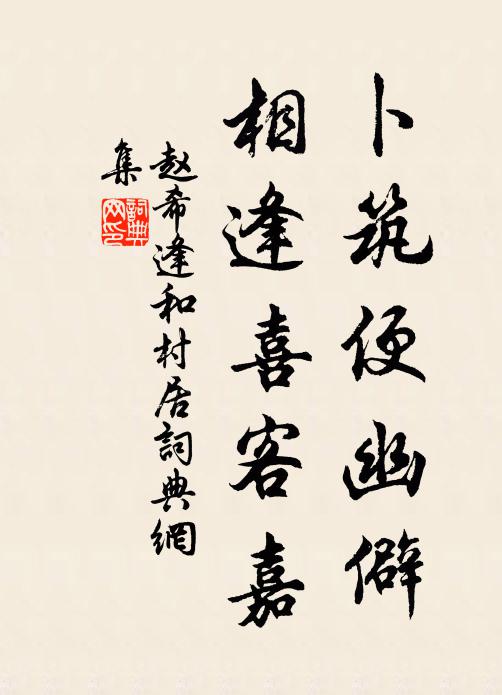 卜筑便幽僻
相逢喜客嘉
赵希逢和村居詞典網
集
詞典
网印